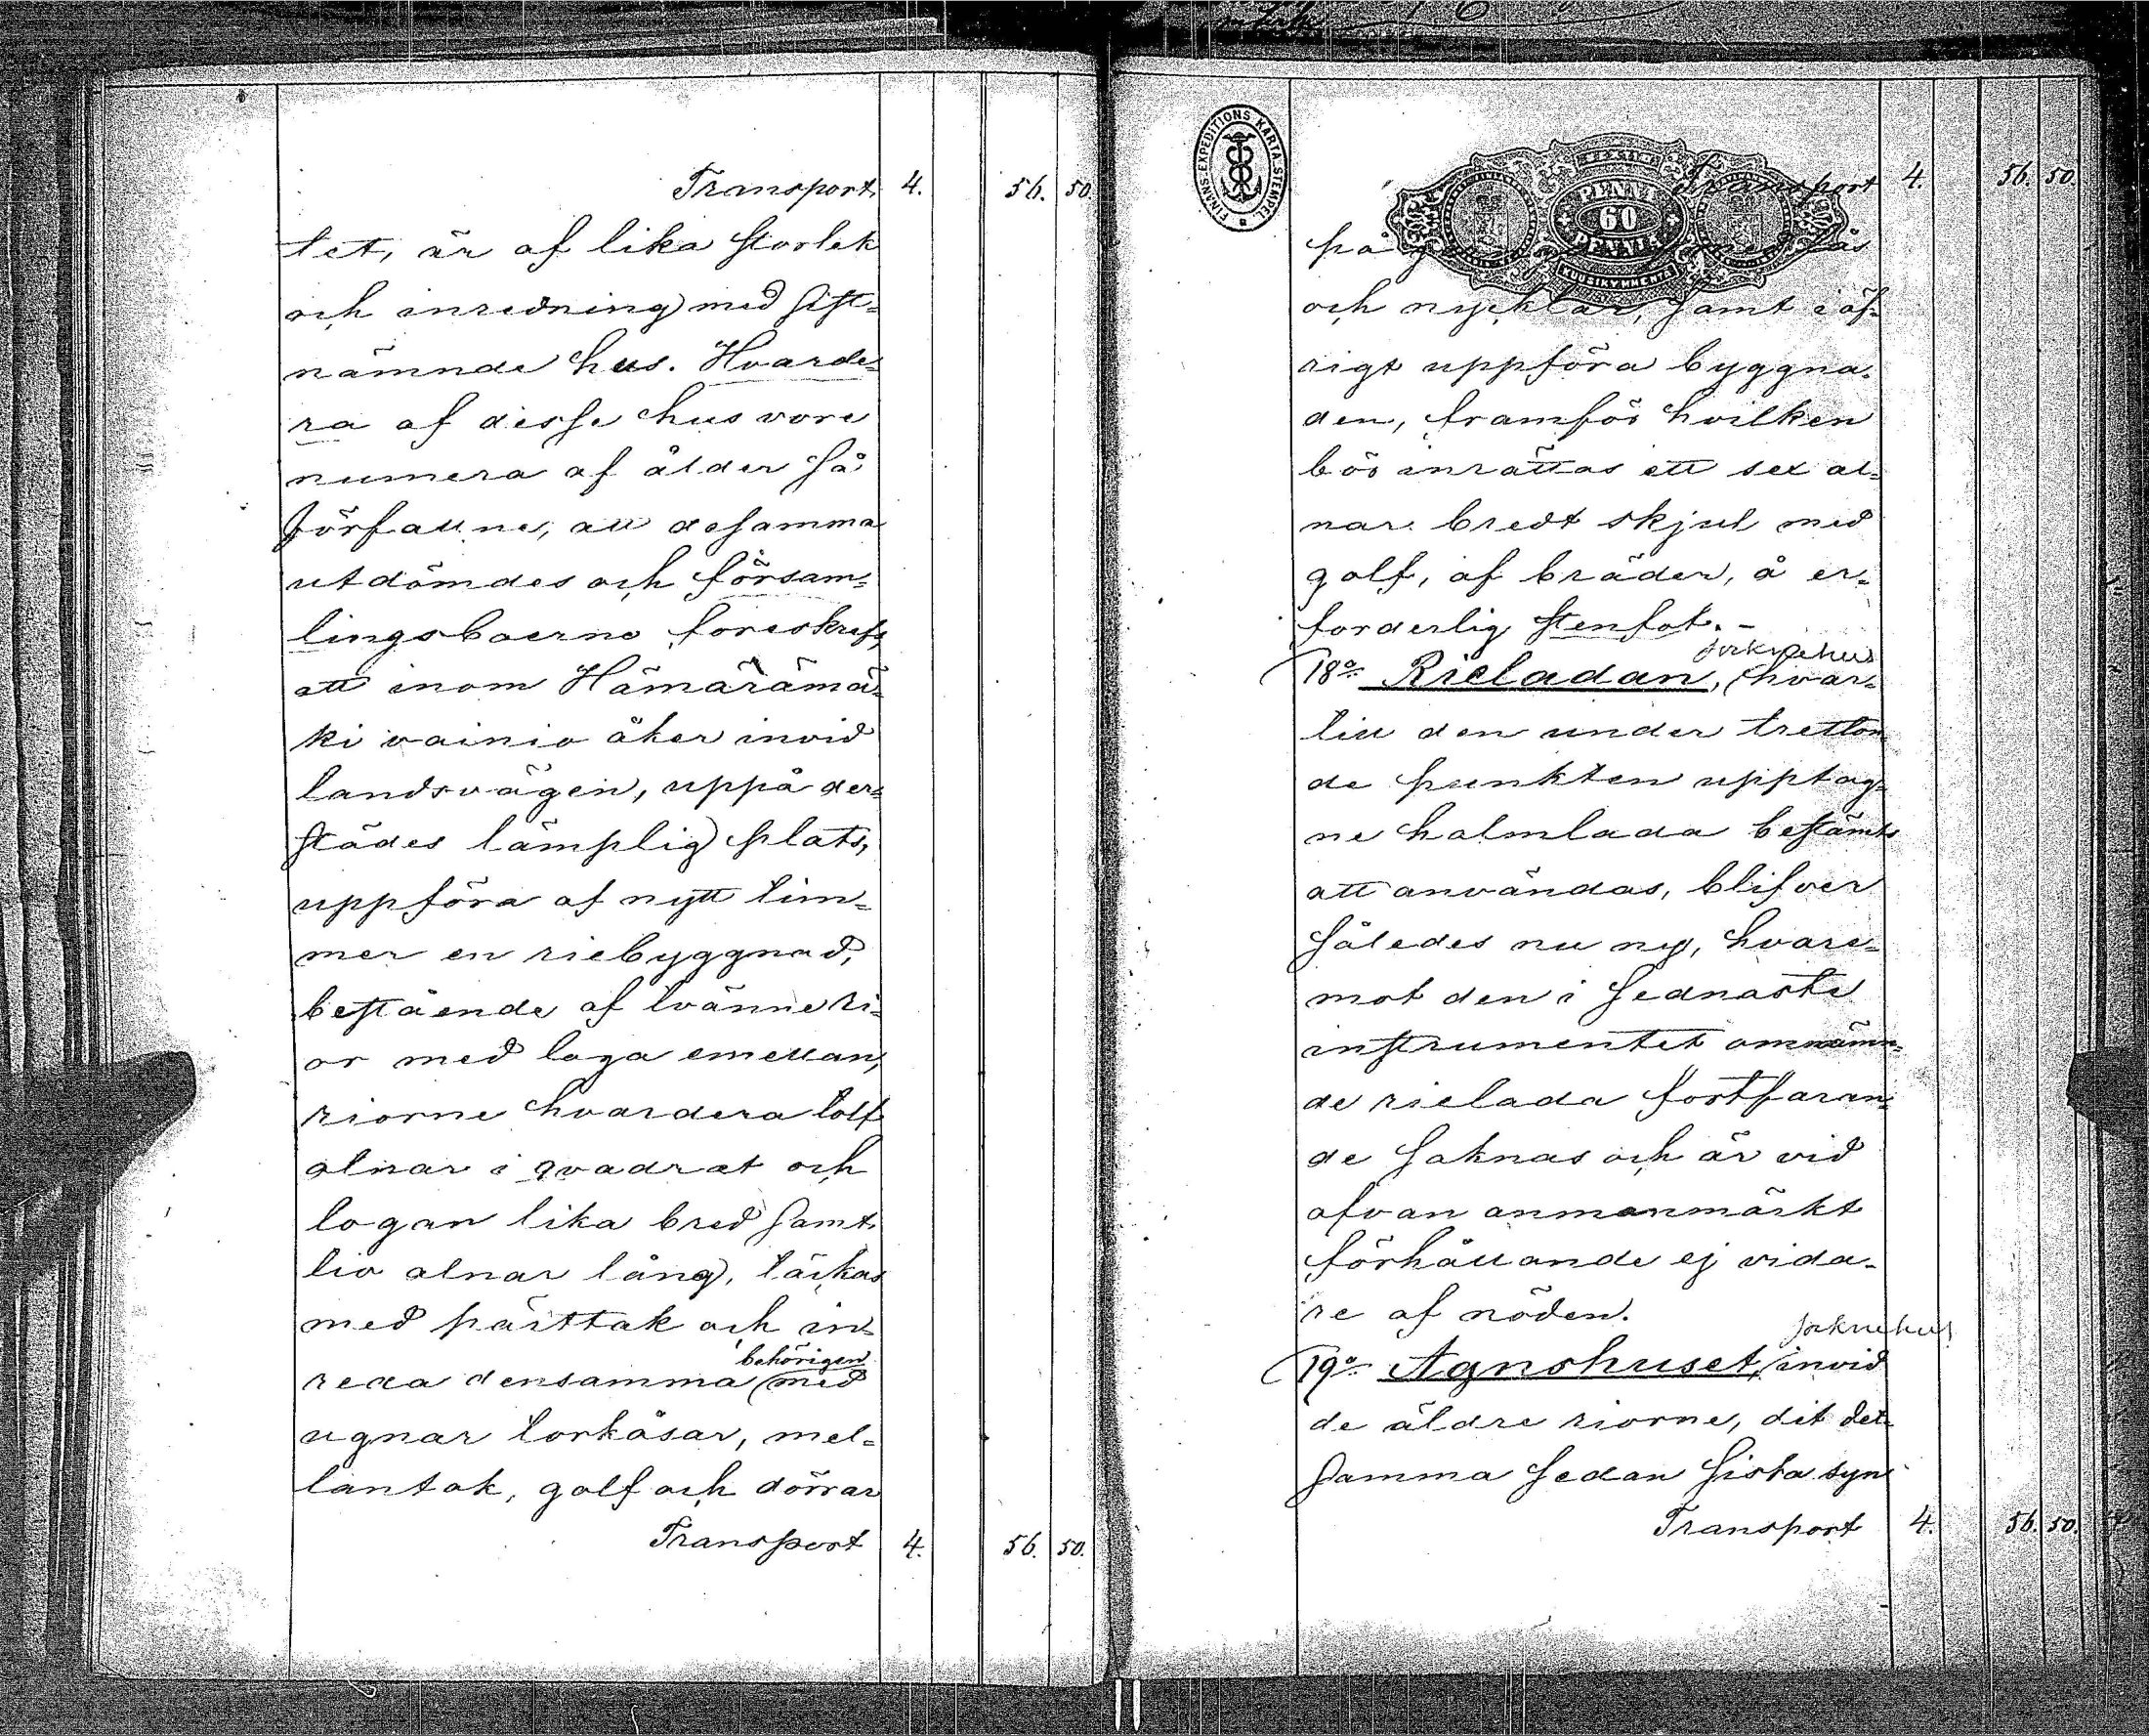 Transport 4. 56. 50.
tet, är af lika storlek
och inredning med sist-
nämnde hus. Hvarde-
ra af desse hus vore
numera af ålder så
förfallne, att desamma
utdömdes och försam-
lingsboerne föreskrefs,
att inom Hämärämä-
ki vainio åker invid
landsvägen, uppå der-
städes lämplig plats,
uppföra af nytt tim-
mer en riebyggnad,
bestående af tvänne ri-
or med loga emellan,
riorne hvardera tolf
alnar i qvadrat och
logan lika bred samt
tio alnar lång, täckas
med pärttak och in-
behörigen
reda densamma med
ugnar torkåsar, mel-
lantak, golf och dörrar
Transport 4. 56. 50.
FINANS-EXPEDITIONS KARTA-STEMPEL
PENNI
60
PENNIÄ
KUUSIKYMMENTÄ
Transport 4. 56. 50.
på med lås
och nycklar, samt i öf-
rigt uppföra byggna-
den, framför hvilken
bör inrättas ett sex al-
nar bredt skjul med
golf, af bräder, å er-
forderlig stenfot. -
18o Rieladan, hvar-
till den under tretton-
de punkten upptag-
ne halmlada bestämts
att användas, blifver
således nu ny, hvare-
mot den i sednaste
instrumentet omnämn-
de rielada fortfaran-
de saknas och är vid
ofvan anmanmärkt
förhållande ej vida-
re af nöden.
19o Agnshuset, invid
de äldre riorne, dit det-
samma sedan sista syn
Transport 4. 56. 50.